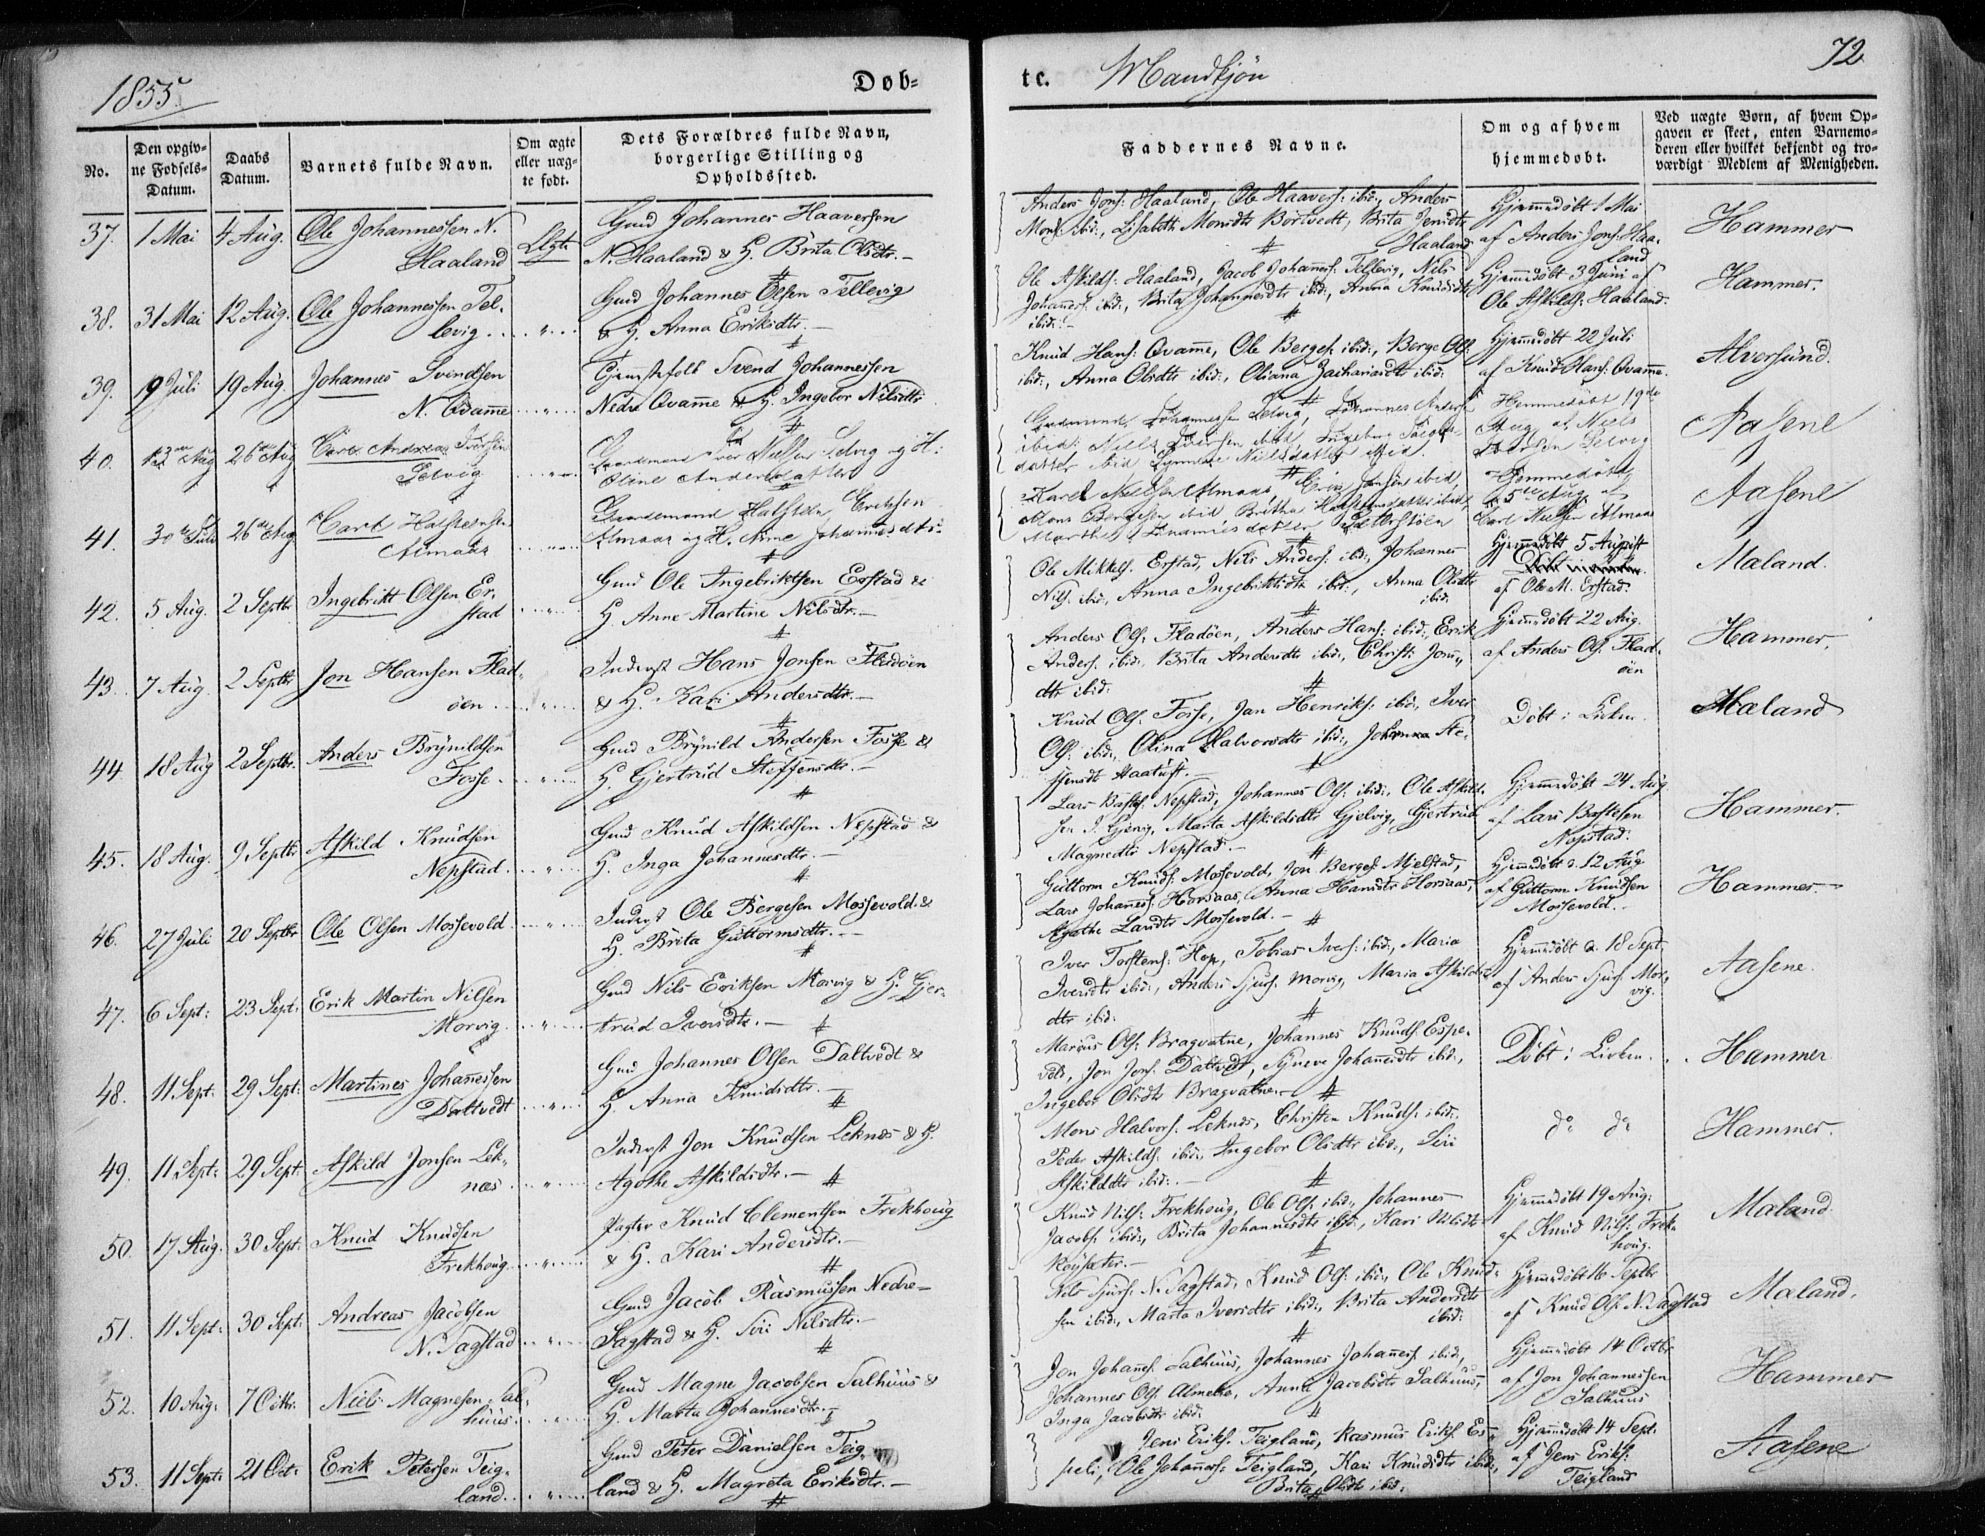 1855.
Døb-
te. Mandkjön
72
No.
Den opgiv-
ne Fødsels-
Datum.
Daabs
Datum.
Barnets fulde Navn.
Om ægte
eller uæg-
te født.
Dets Forældres fulde Navn,
borgerlige Stilling og
Opholdssted.
Faddernes Navne.
Om og af hvem
hjemmedøbt.
Ved uægte Børn, af hvem Op-
gaven er skeet, enten Barnemo-
deren eller hvilket bekjendt og tro-
værdigt Medlem af Menigheden.
37. 1 Mai 4 Aug. Ole Johannessen N.
Haaland
Gmd Johannes Haaversen
N. Haaland & H. Brita Olsdtr. -
Anders Jons: Haaland, Ole Haavers: ibid:, Anders
Mons: ibid:, Lisabeth Monsdtr Bortvedt, Brita Jensdtr
Haaland
Hjemmedöbt 1 Mai
af Anders Jons: Haa-
land
Hammer
38. 31 Mai 12 Aug. Ole Johannessen Tel-
levig
Gmd Johannes Olsen Tellevig
& H. Anna Eriksdtr. -
Ole Askilds: Haaland, Jacob Johanes: Tellevig, Nils
Johanes: ibid:, Brita Johannesdtr ibid:, Anna Knudsdtr
ibid: -
Hjemmedöbt 3 Juni af
Ole Askilds: Haaland.
Hammer.
39. 9 Juli 19 Aug. Johannes Svendsen
N. Qvamme
Svend Johannessen
Nedre Qvamme & H. Ingebor Nilsdtr
Knud Hans: Qvamme, Ole Berges: ibid:, Berge Ols:
ibid:, Anna Olsdtr ibid:, Oliana Zachariasdtr ibid:
Hjemmedöbt 22 Juli
af Knud Hans: Qvamme.
Alversund.
40. 26 Aug Carl Andreas Iversen
Selvig
Gaardmand Iver Nielsen Selvig og H:
Oline Andersdatter
Johannes Anders:
ibid: Niels Iversen ibid,
datter ibid Nielsdatter ibid.
Hjemmedöbt 19de
Aug. af Niels
Iversen Selvig
Aasene
41. 30 Juli 26 Aug Carl Halsteensen
Almaas
Gaardmand Halsten Eriksen
Almaas og H. Anne Johannesdtr:
Karl Nielsen Almaas
Mons Børgesen ibid Britha Halstensdatter ibid,
Hjemmedöbt
5te Aug. af
Carl Nielsen Almaas
Aasene
42. 5 Aug. 2 Septbr Ingebritt Olsen Er-
stad
Gmd Ole Ingebriktsen Erstad &
H. Anne Martine Nilsdtr. -
Ole Mikkels: Erstad, Nils Anders: ibid:, Johannes
Nils: ibid:, Anna Ingebriktsdtr ibid:, Anna Olsdtr
ibid:
Hjemmedöbt 5 August
af Ole M. Erstad.
Maland.
43. 7 Aug. 2 Septbr Jon Hansen Flad-
öen
Inderst Hans Jonsen Fladöen
& H. Kari Andersdtr. -
Anders Ols: Fladöen, Anders Hans: ibid:, Erik
Anders: ibid:, Brita Andersdtr ibid:, Christi Jons-
dtr ibid:
Hjemmedöbt 22 Aug.
af Anders Ols: Flad-
öen
Hammer.
44 18 Aug 2 Septbr. Anders Brynildsen
Fosse
Gmd Brynild Andersen Fosse &
H. Gjertrud Steffensdtr. -
Knud Ols: Fosse, Jan Henriks: ibid:, Iver
Ols: ibid:, Olina Halvorsdtr ibid:, Johanna Ste-
ffensdtr
Döbt i Kirken.
Maland
45. 18 Aug. 9 Septbr Askild Knudsen
Nepstad
Gmd Knud Askildsen Nepstad &
H. Inga Johannesdtr. -
Lars Bastes: Nepstad, Johannes Ols: ibid:, Ole Askild-
sen Marta Askildsdtr Gjelvig, Gjertrud
Magnedtr Nepstad. -
Hjemmedöbt 24 Aug
af Lars Bastesen
Nepstad.
Hammer.
46. 27 Juli 20 Septbr Ole Olsen Mossevold
Inderst Ole Bergesen Mossevold &
H. Brita Guttormsdtr. -
Guttorm Knuds: Mossevold, Jon Berges: Mjelstad,
Lars Johannes: Horsaas, Anna Hansdtr Horsaas,
Agathe Mossevold. -
Hjemmedöbt d. 12 Aug
af Guttorm Knudsen
Mossevold.
Hammer. -
47. 6 Sept: 23 Sept: Erik Martin Nilsen
Morvig
Gmd Nils Eriksen Morvig & H. Gjer-
trud Iversdtr. -
Iver Torstens: Hop, Tobias Ivers: ibid:, Maria
Iversdtr ibid:, Anders Sjurs: Morvig, Maria Askilds-
dtr ibid:
Hjemmedöbt d. 18 Sept.
af Anders Sjurs: Mor-
vig.
Aasene.
48. 11 Sept: 29 Sept: Martines Johanessen
Daltvedt
Gmd Johannes Olsen Daltvedt &
H. Anna Knudsdtr. -
Marcus Ols: Bragvatne, Johannes Knuds: Espe-
Jon Jons: Daltvedt, Synneve Johannesdtr ibid:,
Ingebor Olsdtr Bragvatne. -
Döbt i Kirken.
Hammer
49. 11 Sept: 29 Sept: Askild Jonsen Lek-
næs
Inderst Jon Knudsen Leknæs & H.
Agathe Askildsdtr. -
Mons Halvors: Leknæs, Christen Knuds: ibid:,
Peder Askilds: ibid:, Ingebor Olsdtr ibid:, Siri
Askildsdtr ibid: -
do do
Hammer.
50. 17 Aug. 30 Sept: Knud Knudsen
Frekhoug
Pagter Knud Clementsen Frekhoug
& H. Kari Andersdtr. -
Knud Nils: Frekhoug, Ole Ols: ibid:, Johannes
Jacobs: ibid:, Brita Johannesdtr ibid:, Kari Nilsdtr
Röysæter. -
Hjemmedöbt 19 Aug:
af Knud Nils: Frek-
houg.
Maland.
51. 11 Sept: 30 Sept: Andreas Jacobsen
N. Sagstad
Gmd Jacob Rasmussen Nedre-
Sagstad & H. Siri Nilsdtr. -
Nils Sjurs: N. Sagstad, Knud Ols: ibid:, Ole Knud-
sen ibid:, Marta Iversdtr ibid:, Brita Andersdtr
ibid:
Hjemmedöbt 16 Septbr
af Knud Ols: N. Sagstad
Maland.
52. 10 Aug: 7 Octbr. Niels Magnesen Sal-
huus
Gmd Magne Jacobsen Salhuus &
H. Marta Johannesdtr. -
Jon Johanes: Salhuus, Johannes Johanes: ibid:,
Johannes Ols: Almelie, Anna Jacobsdtr Salhuus,
Inga Jacobsdtr ibid:
Hjemmedöbt 14 Octbr
af Jon Johannessen
Salhuus
Hammer
53. 11 Sept: 21 Oct: Erik Petersen Teig-
land
Gmd Peter Danielsen Teig-
land & H. Magreta Eriksdtr. -
Jens Eriks: Teigland, Rasmus Eriks: Es-
peli, Ole Johannes: Teigland, Kari Knudsdtr ibid:,
Brita Olsdtr ibid:
Hjemmedöbt 14 Sept:
af Jens Eriks:
Teigland
Aasene